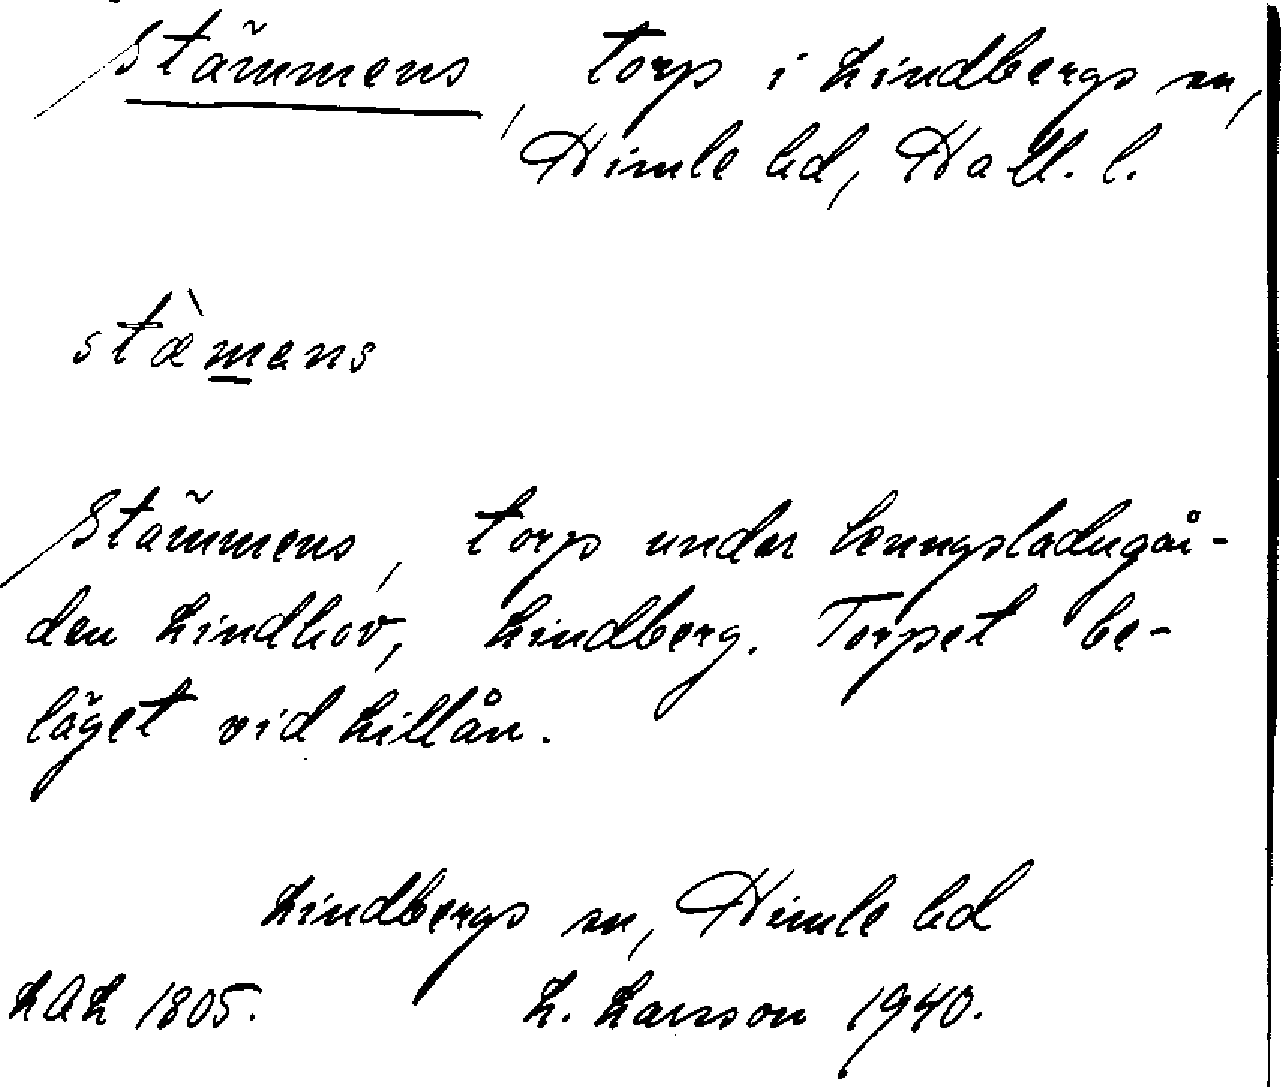 Stämmens, torp i Lindbergs sn,
Himle hd, Hall. l.
stæ̀mens
Stämmens, torp under kungsladugår-
den Lindhov, Lindberg. Torpet be-
läget vid Lillån.
Lindbergs sn, Himle hd
LAL 1805. L. Larsson 1940.